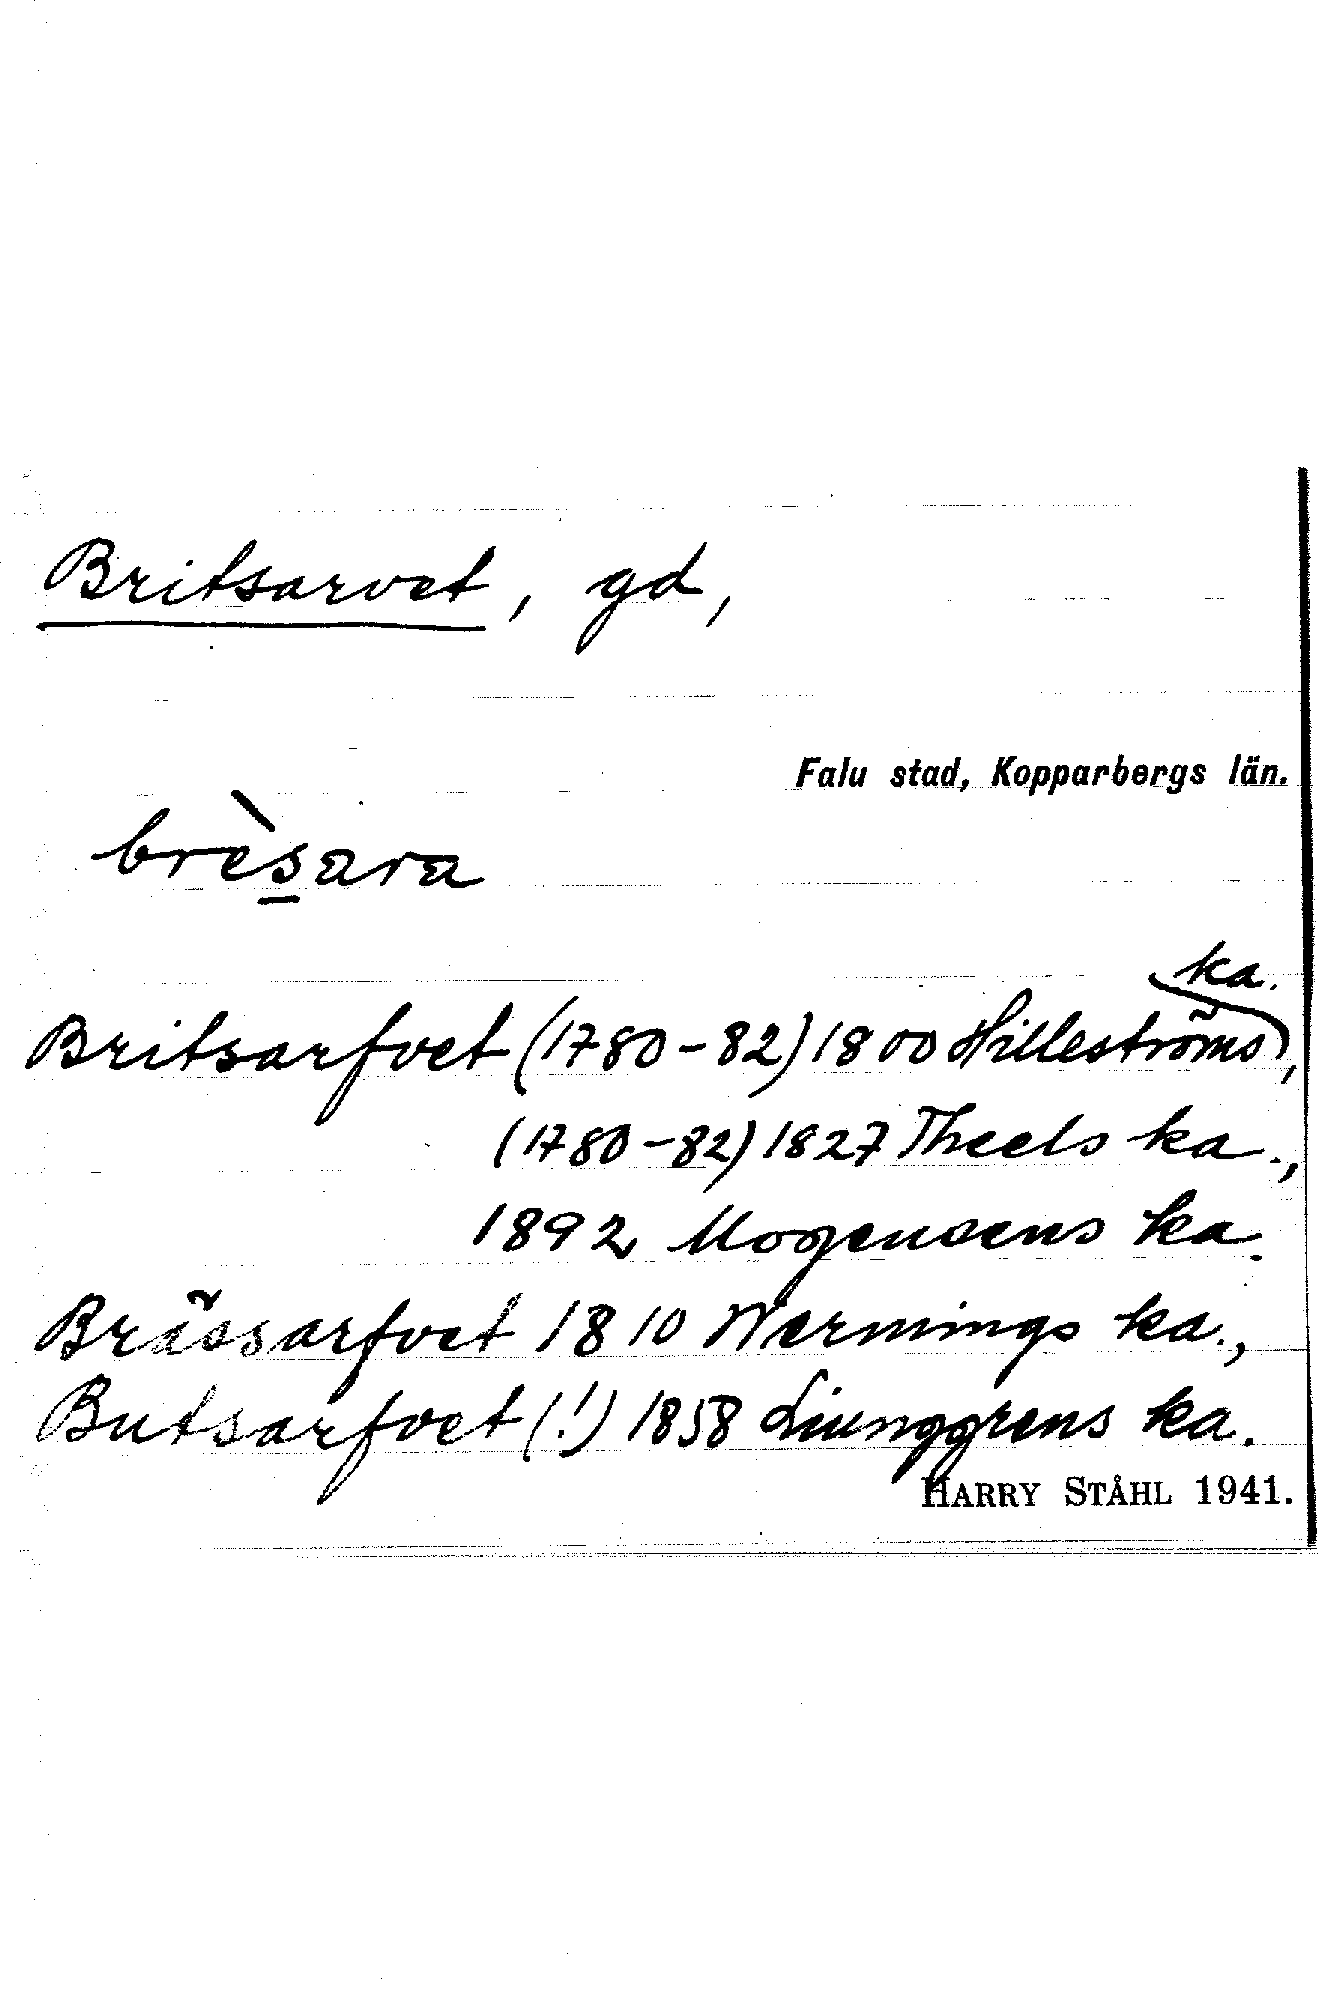 Britsarvet, gd,
Falu stad, Kopparbergs län.
brèsara
ka.
Britsarfvet (1780-82) 1800 Hilleströms,
(1780-82) 1827 Theels ka.,
1892 Mogensens ka.
Brässarfvet 1810 Wernings ka.,
Butsarfvet (!) 1858 Liunggrens ka.
HARRY STÅHL 1941.